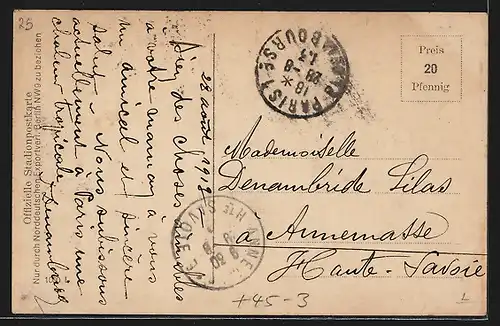 25
Offizielle Stadionpostkarte
Nur durch Norddeutschen Exportverl. Berlin NW9 zu beziehen
28 août 1912
Bien des choses aimables
à votre maman, à vous
un amical et sincère
salut. Nous subissons
actuellement à Paris une
chaleur tropicale
Preis
20
Pfennig
PARIS
BOURSE
18
*
29-8
13
Mademoiselle
Denambride Lilas
à Annemasse
Haute-Savoie
ANNE
HTE SAVOIE
+45-3
L